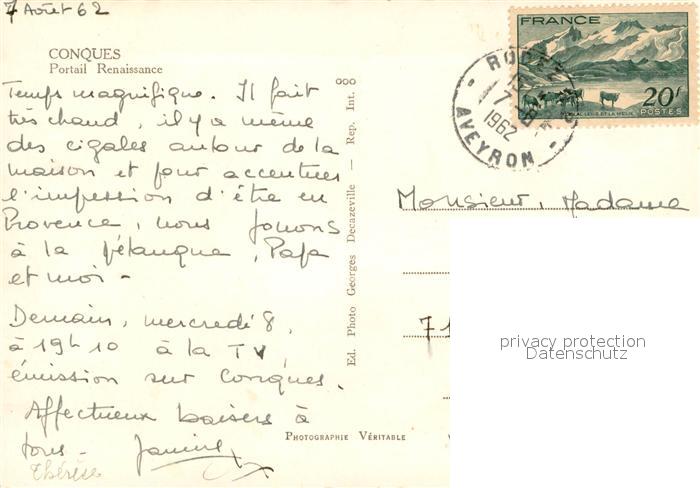 7 Août 62
CONQUES
Portail Renaissance
Temps magnifique. Il fait
très chaud, il y a même
des cigales autour de la
maison et pour accentuer
l'impression d'être en
Provence, nous jouons
à la pétanque, Papa
et moi -
Demain, mercredi 8,
à 19h10 à la TV,
émission sur Conques.
Affectueux baisers à
tous - Janine
Thérèse
Ed. Photo Georges Decazeville — Rep. Int. 000
PHOTOGRAPHIE VÉRITABLE
FRANCE
20f
POSTES
RODEZ
1962
AVEYRON
Monsieur, Madame
71
privacy protection
Datenschutz